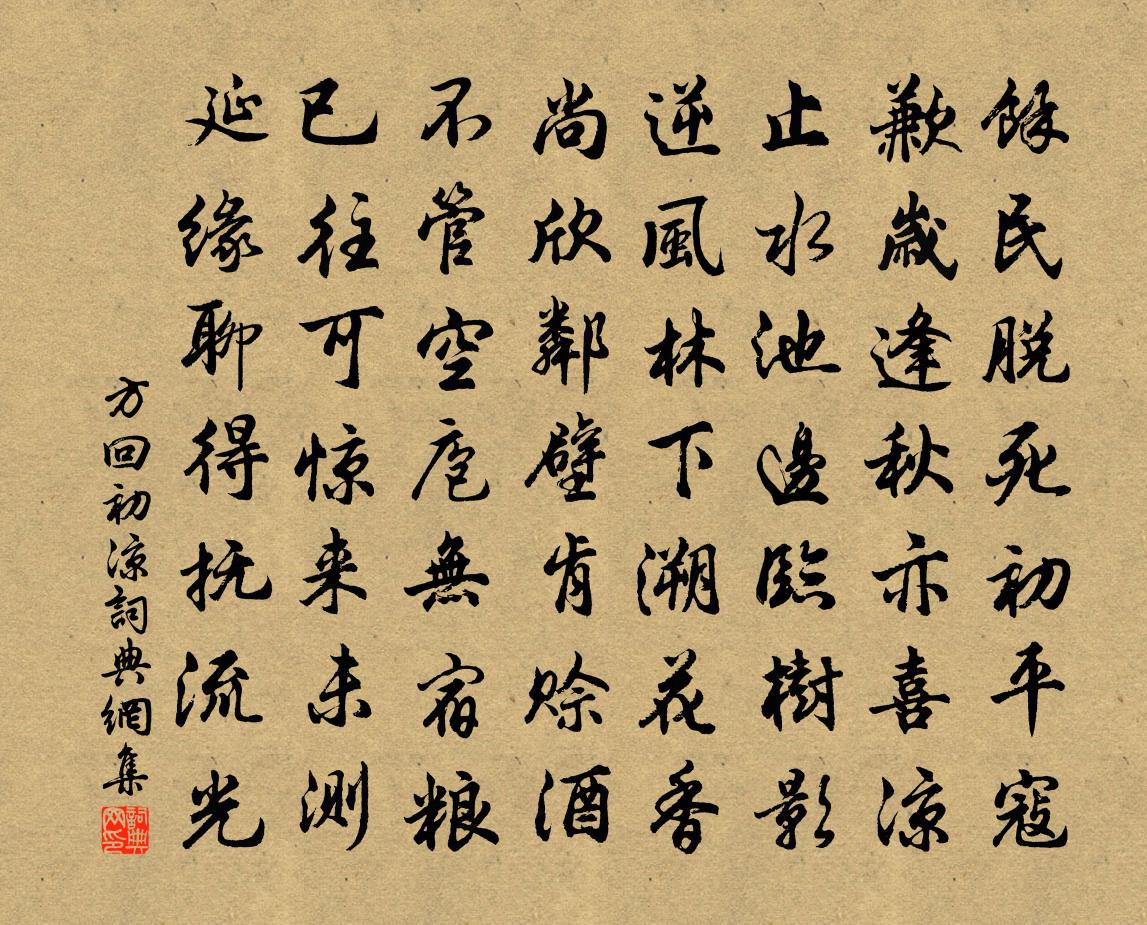 餘民脱死初平寇
歉歲逢秋亦喜凉
止水池邊臨樹影
逆風林下溯花香
尚欣鄰壁肯赊酒
不管空庖無宿粮
已往可惊来未测
延缘聊得抚流光
方回初凉詞典網集
詞典网印